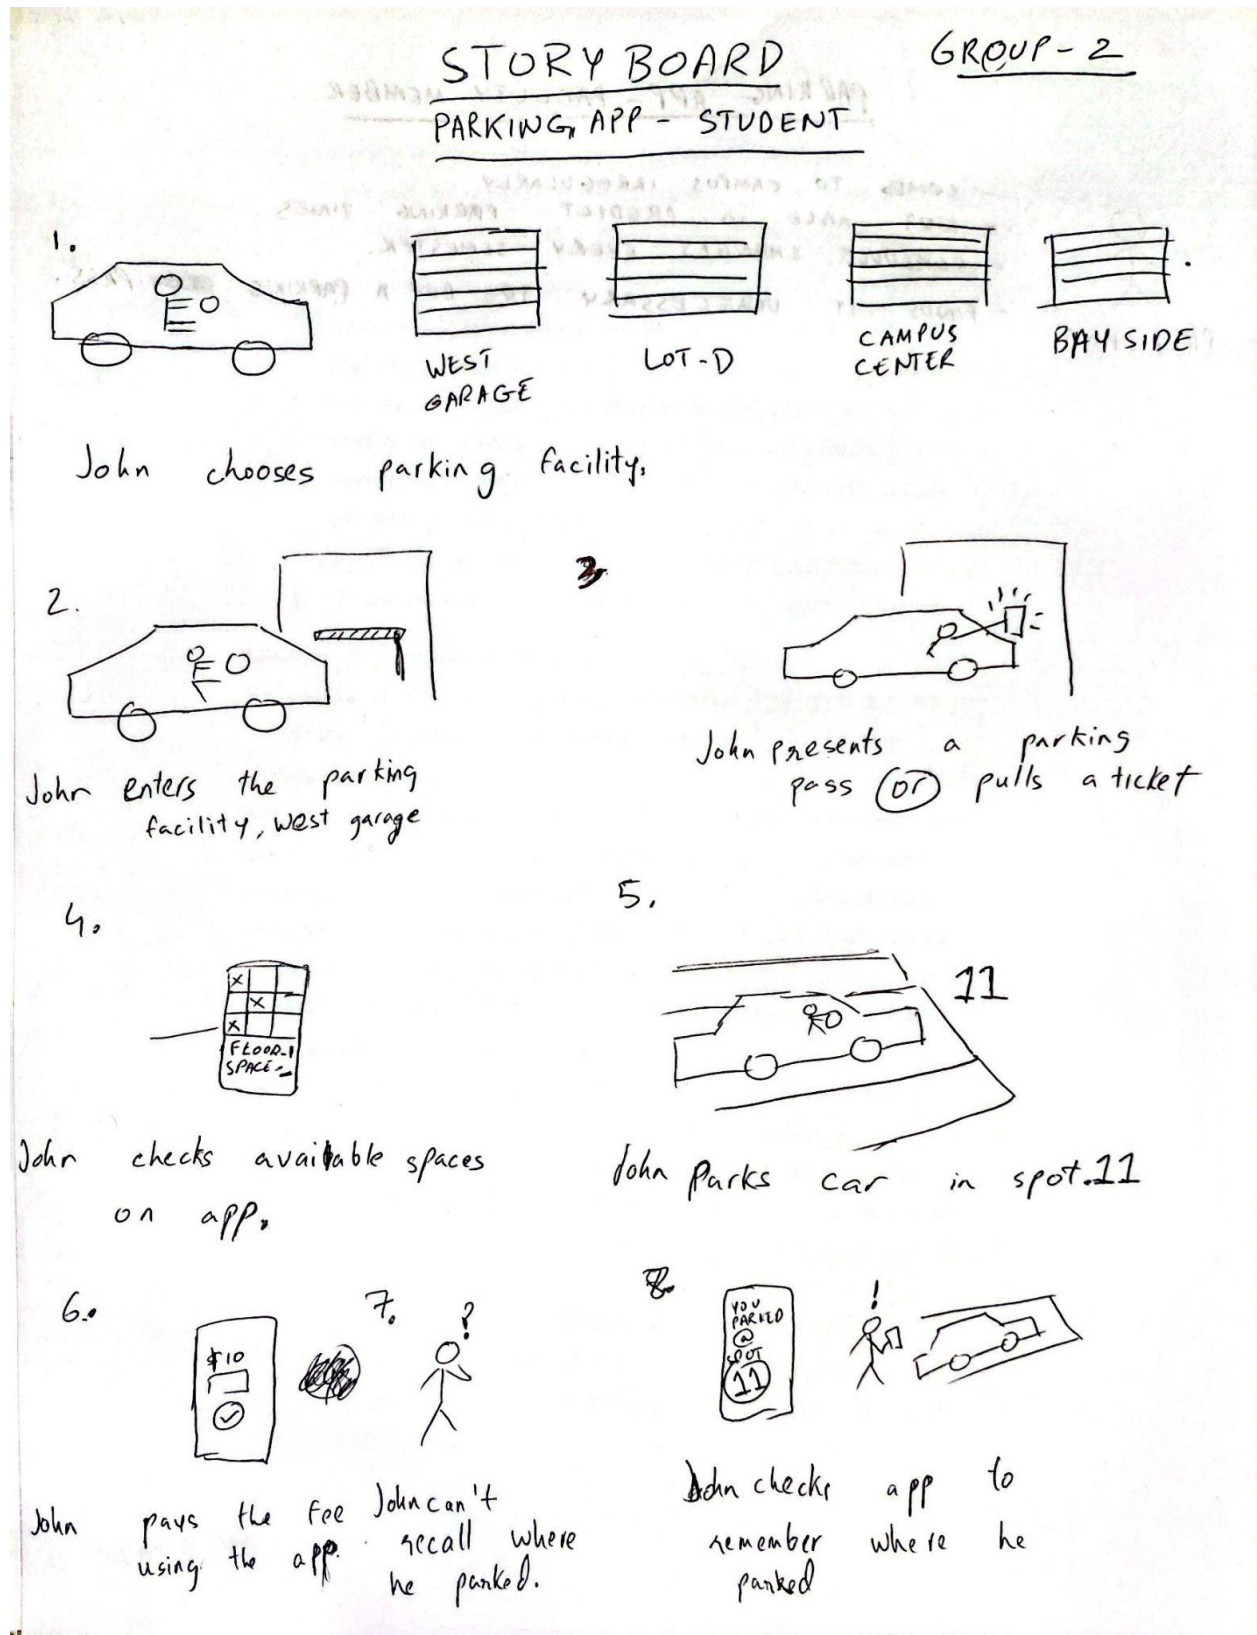 STORY BOARD
GROUP-2
PARKING APP - STUDENT
1.
WEST
GARAGE
LOT-D
CAMPUS
CENTER
BAYSIDE
John chooses parking facility.
2.
John enters the parking
facility, west garage
3.
John presents a parking
pass or pulls a ticket
4.
FLOOR-1
SPACE-
John checks available spaces
on app.
5.
11
John Parks car in spot.11
6.
$10
John pays the fee
using the app.
7.
?
John can't
recall where
he parked.
8.
YOU
PARKED
@
SPOT
11
!
John checks app to
remember where he
parked